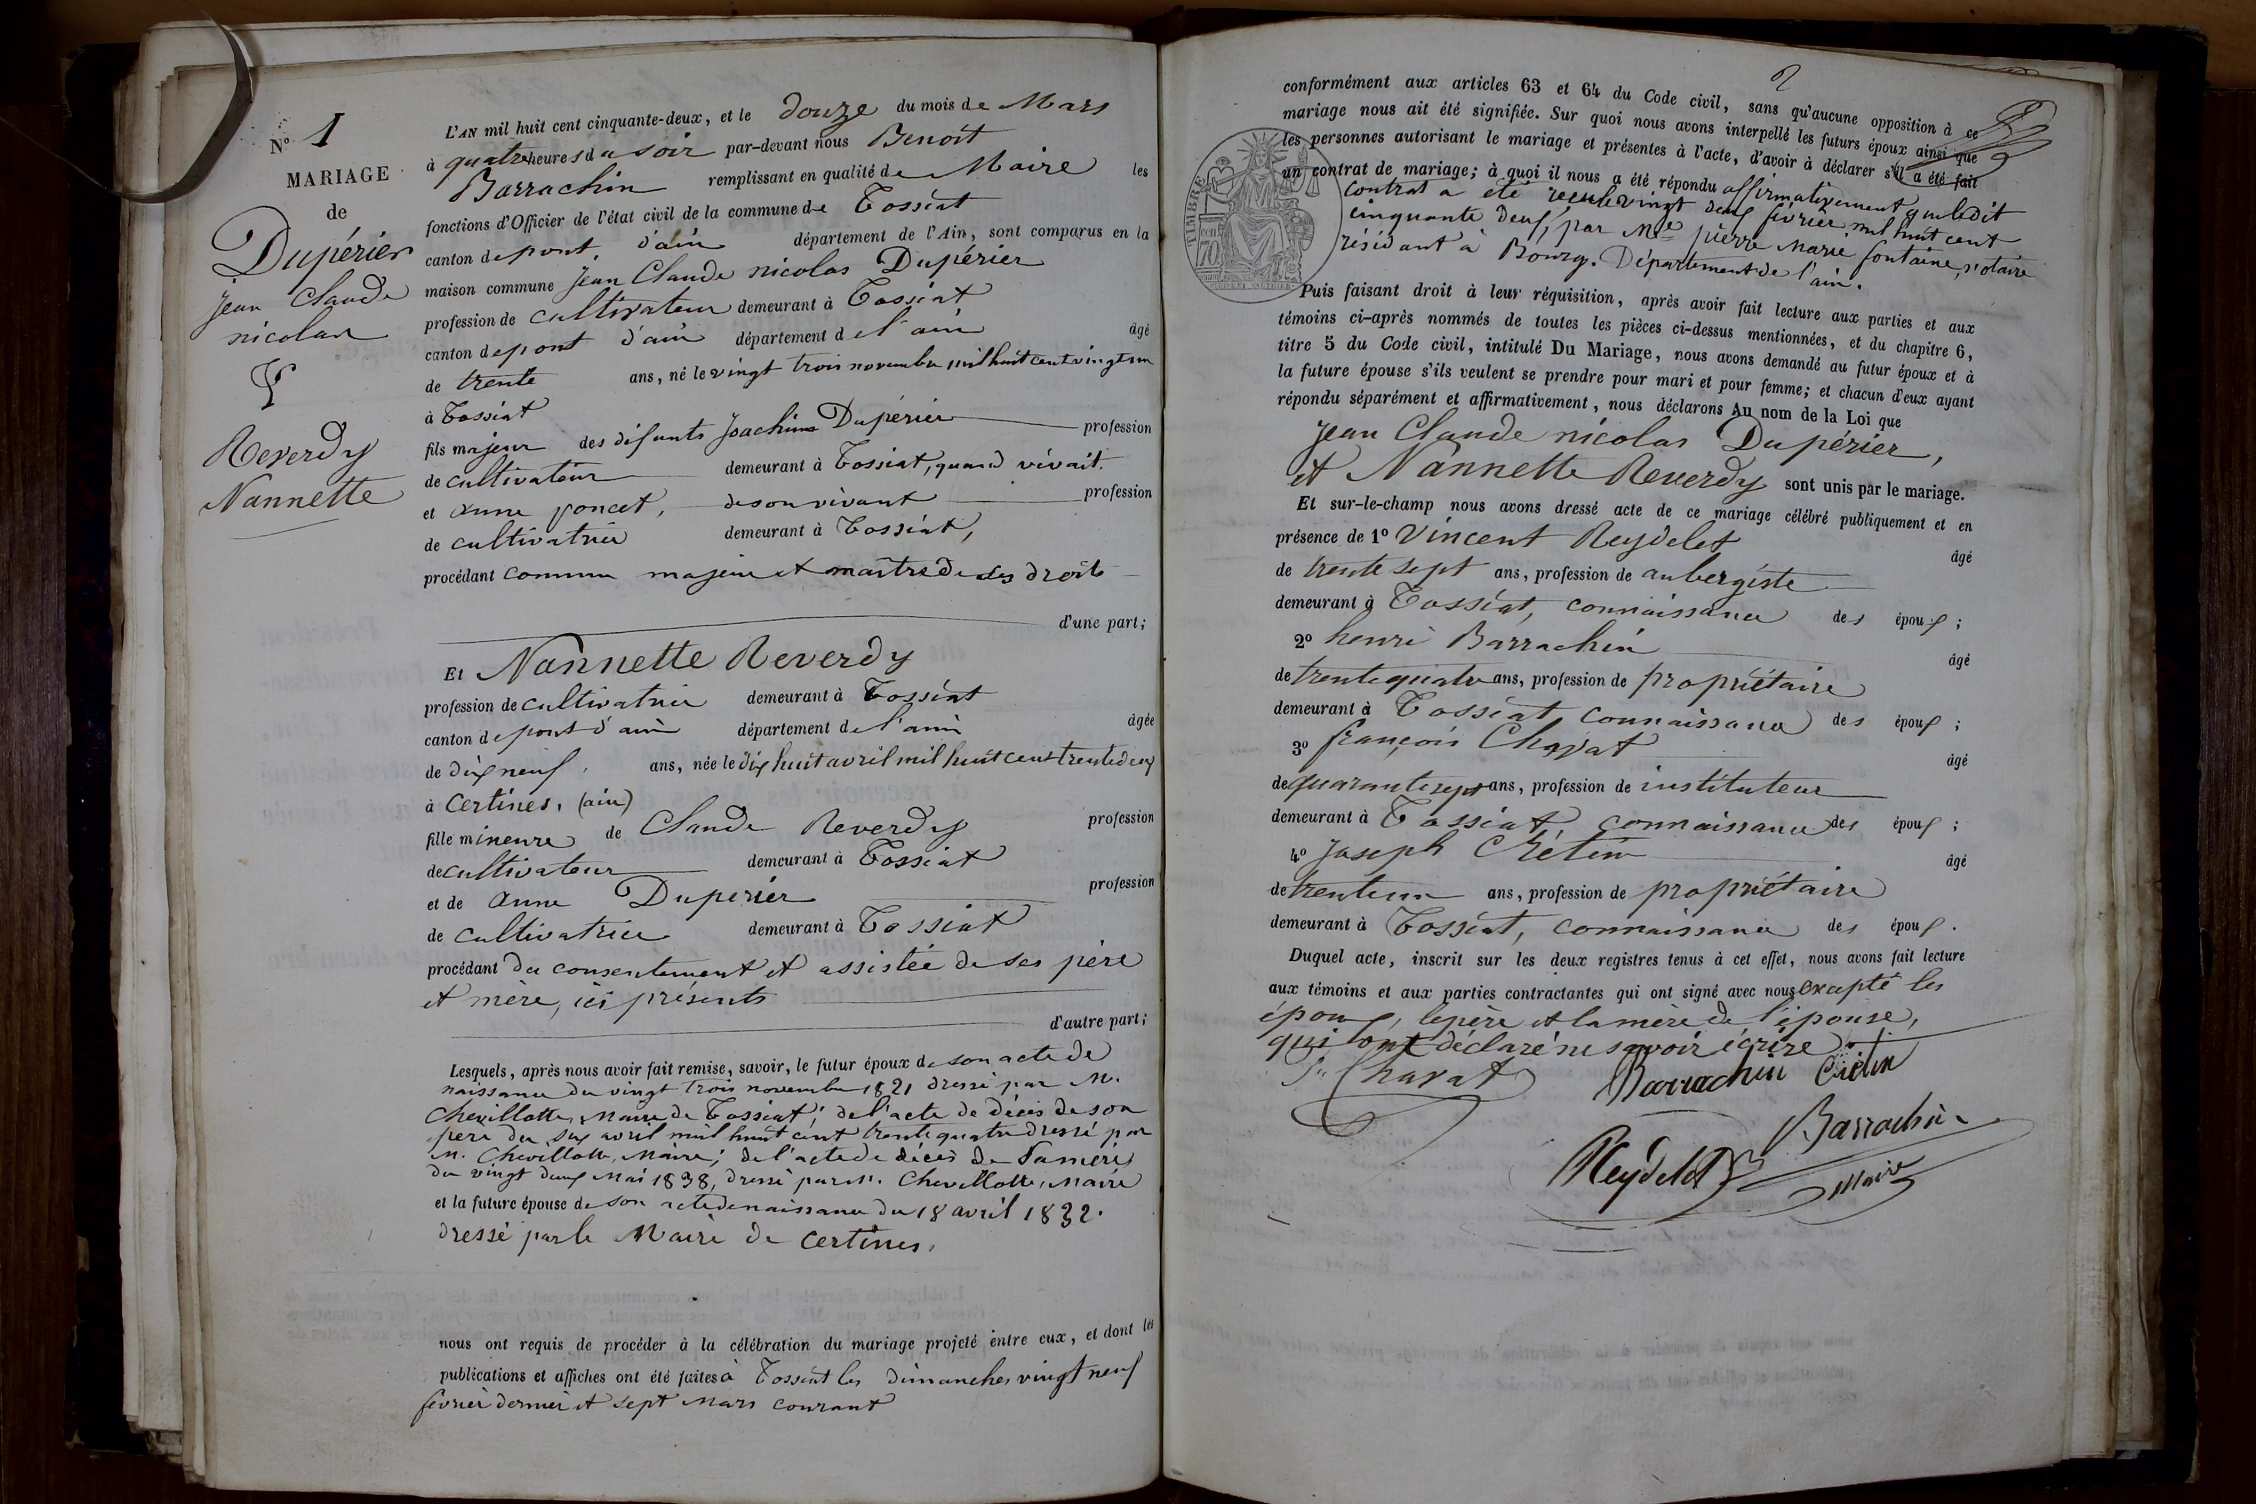 N° 1
MARIAGE
de
Dupérier
jean Claude
nicolas
&
Reverdy
Nannette
L'AN mil huit cent cinquante-deux, et le douze du mois de Mars
à quatre heures du soir par-devant nous Benoit
Barrachin remplissant en qualité de Maire les
fonctions d'Officier de l'état civil de la commune de Tossiat
canton de pont d'ain département de l'Ain, sont comparus en la
maison commune jean Claude nicolas Dupérier
profession de cultivateur demeurant à Tossiat
canton de pont d'ain département de l'ain âgé
de trente ans, né le vingt trois novembre mil huit cent vingt un
à Tossiat
fils majeur des défunts joachim Dupérier profession
de cultivateur demeurant à Tossiat, quand vivait.
et anne poncet, de son vivant profession
de cultivatrice demeurant à Tossiat,
procédant comme majeur et maître de ses droits
d'une part;
Et Nannette Reverdy
profession de cultivatrice demeurant à Tossiat
canton de pont d'ain département de l'ain âgée
de dix neuf, ans, née le dix huit avril mil huit cent trente deux
à Certines, (ain)
fille mineure de Claude Reverdy profession
de cultivateur demeurant à Tossiat
et de anne Duperier profession
de cultivatrice demeurant à Tossiat
procédant du consentement et assistée de ses père
et mère, ici présents
d'autre part;
Lesquels, après nous avoir fait remise, savoir, le futur époux de son acte de
naissance du vingt trois novembre 1821 dressé par M.
Chevillotte, Maire de Tossiat; de l'acte de décès de son
père du six avril mil huit cent trente quatre dressé par
M. Chevillotte, Maire; de l'acte de décès de sa mère
du vingt deux Mai 1838, dressé par M. Chevillotte, Maire
et la future épouse de son acte de naissance du 18 avril 1832.
dressé par le Maire de Certines,
nous ont requis de procéder à la célébration du mariage projeté entre eux, et dont les
publications et affiches ont été faites à Tossiat les dimanches vingt neuf
février dernier et sept Mars courant
2
conformément aux articles 63 et 64 du Code civil, sans qu'aucune opposition à ce
mariage nous ait été signifiée. Sur quoi nous avons interpellé les futurs époux ainsi que
les personnes autorisant le mariage et présentes à l'acte, d'avoir à déclarer s'il a été fait
un contrat de mariage; à quoi il nous a été répondu affirmativement que ledit
contrat a été reçu le vingt deux février mil huit cent
cinquante deux, par Me pierre Marie fontaine, notaire
résidant à Bourg. Département de l'ain.
TIMBRE
70
Puis faisant droit à leur réquisition, après avoir fait lecture aux parties et aux
témoins ci-après nommés de toutes les pièces ci-dessus mentionnées, et du chapitre 6,
titre 5 du Code civil, intitulé Du Mariage, nous avons demandé au futur époux et à
la future épouse s'ils veulent se prendre pour mari et pour femme; et chacun d'eux ayant
répondu séparément et affirmativement, nous déclarons Au nom de la Loi que
jean Claude nicolas Dupérier,
et Nannette Reverdy sont unis par le mariage.
Et sur-le-champ nous avons dressé acte de ce mariage célébré publiquement et en
présence de 1° Vincent Reydelet âgé
de trente sept ans, profession de aubergiste
demeurant à Tossiat, connaissance des époux;
2° henri Barrachin âgé
de trente quatre ans, profession de propriétaire
demeurant à Tossiat connaissance des époux;
3° françois Chavat âgé
de quarante sept ans, profession de instituteur
demeurant à Tossiat connaissance des époux;
4° Joseph Crétin âgé
de trente un ans, profession de propriétaire
demeurant à Tossiat, connaissance des époux.
Duquel acte, inscrit sur les deux registres tenus à cet effet, nous avons fait lecture
aux témoins et aux parties contractantes qui ont signé avec nous excepté les
époux, le père et la mère de l'épouse,
qui ont déclaré ne savoir écrire.
Chavat Barrachin Crétin
Reydelet Barrachin
Maire